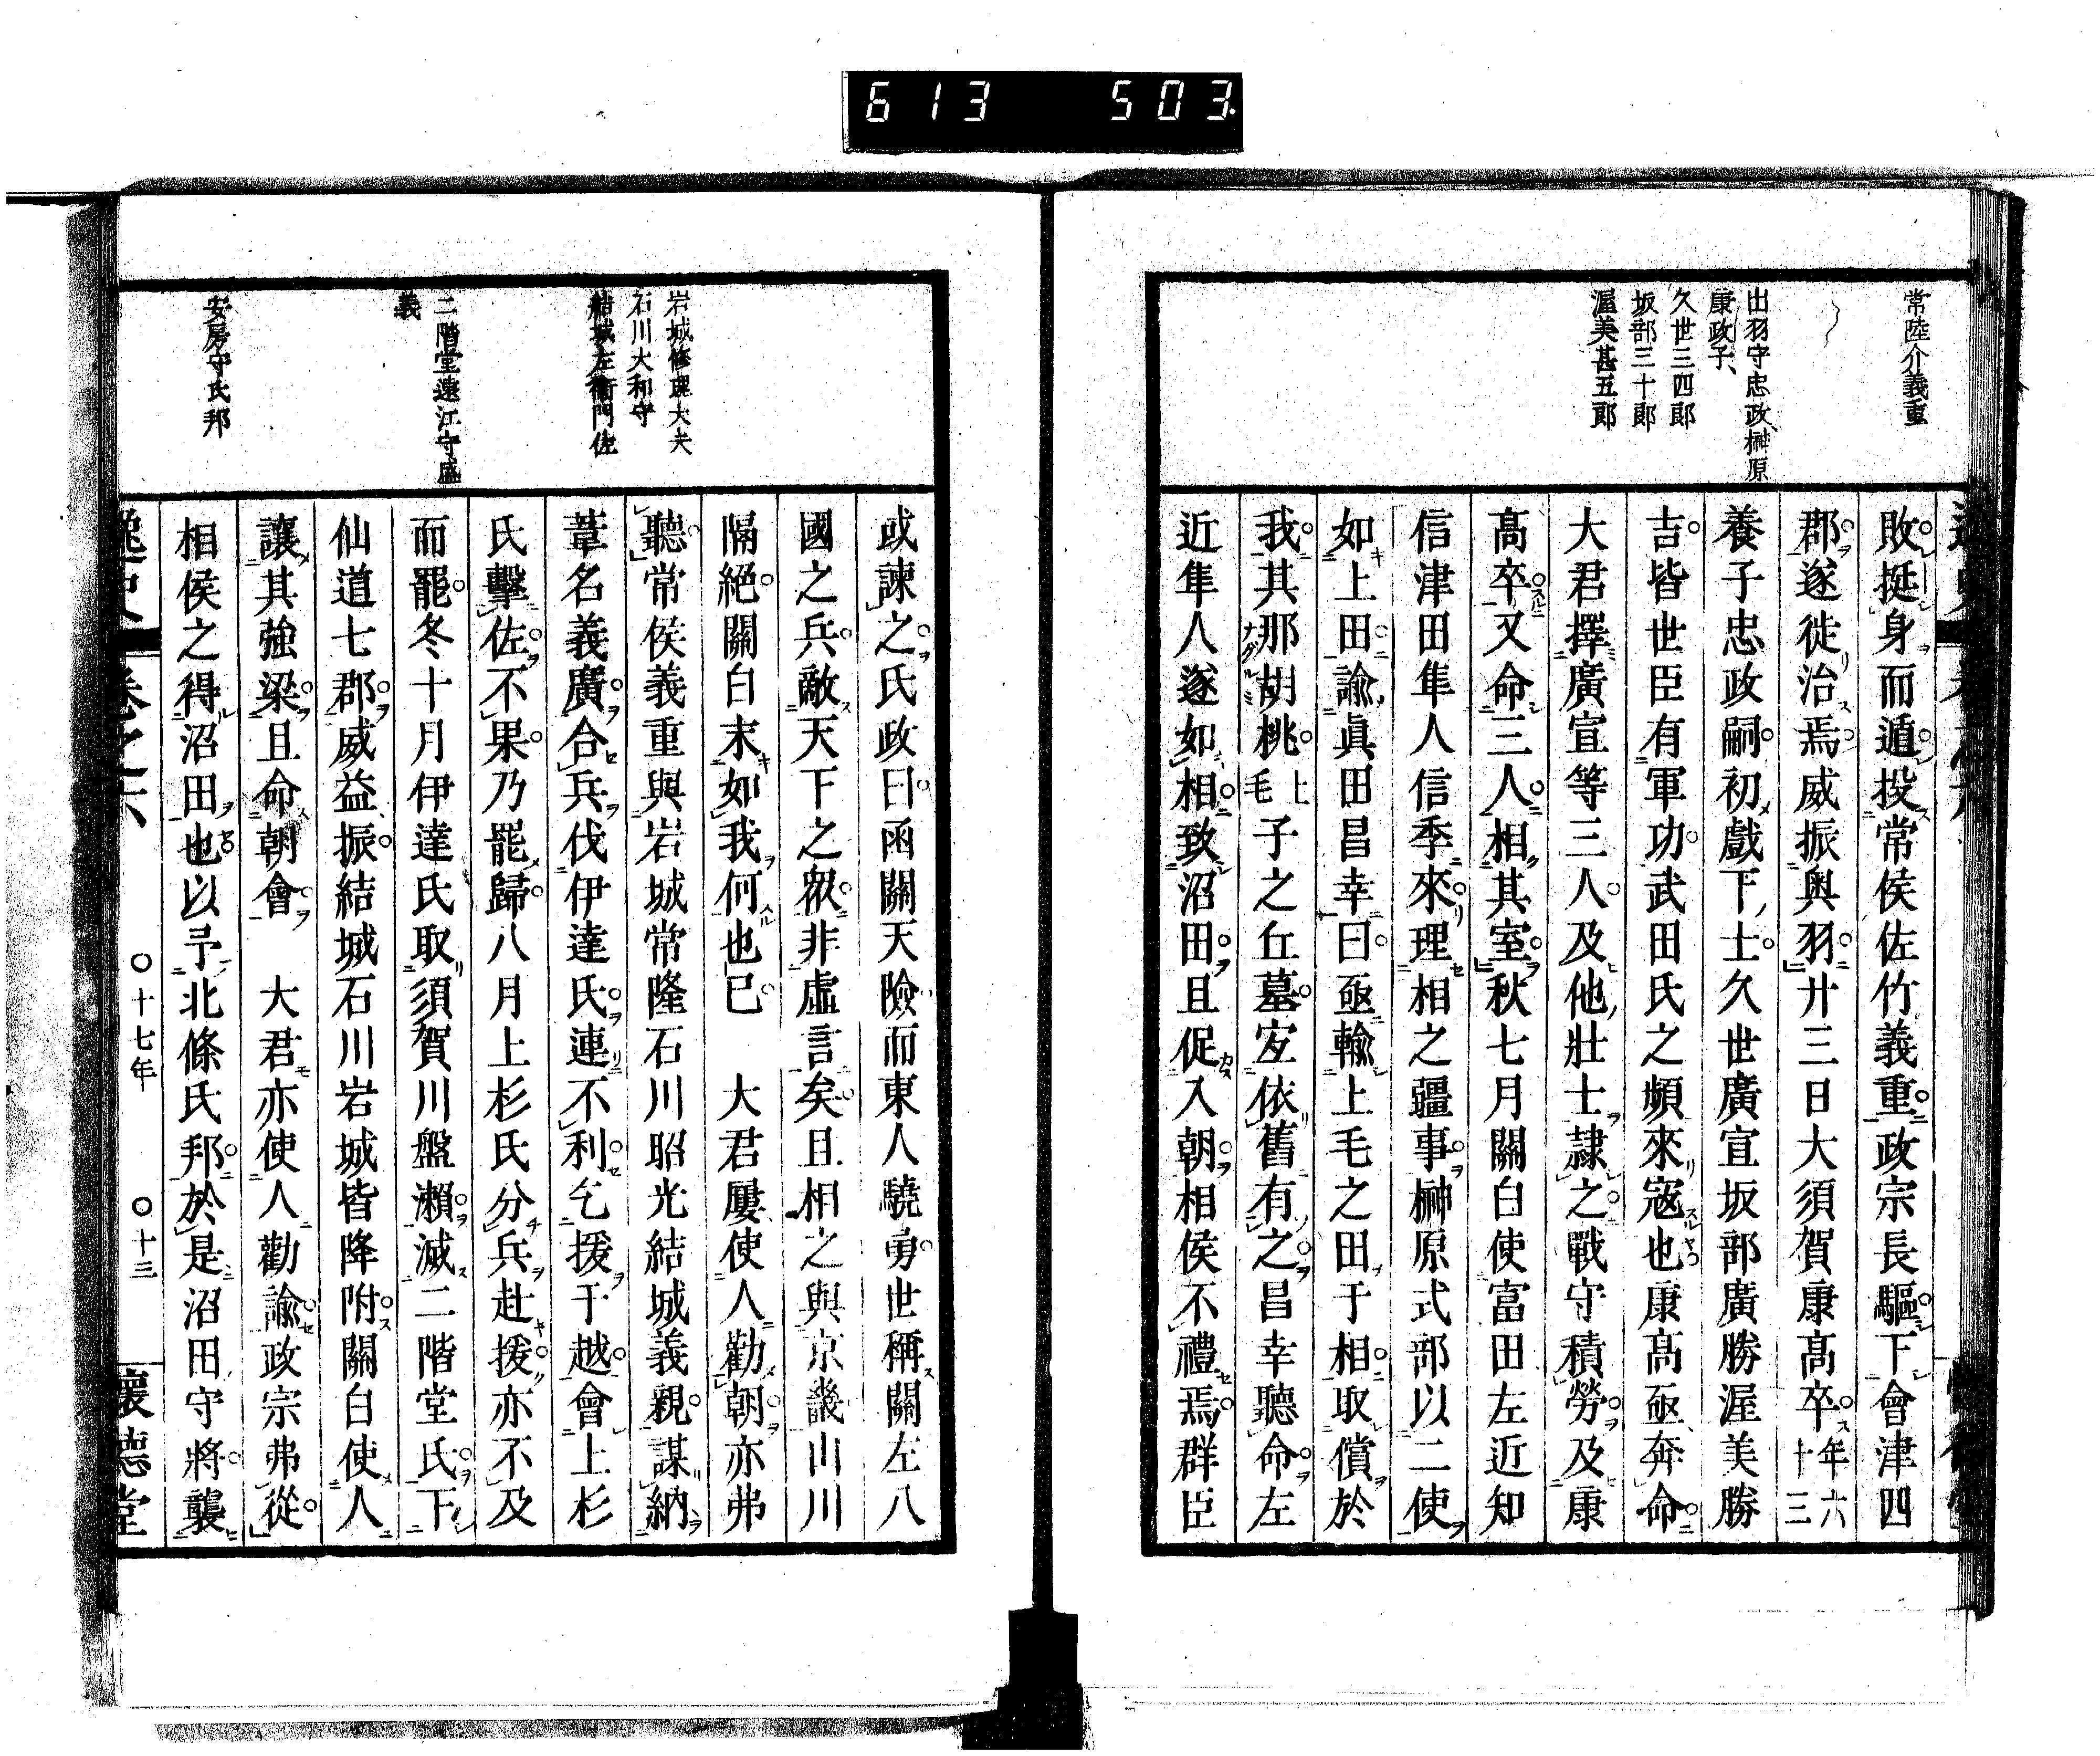 613 503
常陸介義重
出羽守忠政、榊原
康政子、
久世三四郎
坂部三十郎
渥美甚五郎
敗挺身而遁投常侯佐竹義重政宗長驅下會津四
郡遂徙治焉威振奧羽廿三日大須賀康高卒年六十三
養子忠政嗣初戲下士久世廣宣坂部廣勝渥美勝
吉皆世臣有軍功武田氏之頻來寇也康高亟奔命
大君擇廣宣等三人及他壯士隷之戰守積勞及康
高卒又命三人相其室秋七月關白使富田左近知
信津田隼人信季來理相之疆事榊原式部以二使
如上田諭眞田昌幸曰亟輸上毛之田于相取償於
我其那胡桃上毛子之丘墓宐依舊有之昌幸聽命左
近隼人遂如相致沼田且促入朝相侯不禮焉群臣
岩城修理大夫
石川大和守
結城左衞門佐
二階堂遠江守盛
義
安房守氏邦
或諫之氏政曰函關天險而東人驍勇世稱關左八
國之兵敵天下之衆非虛言矣且相之與京畿山川
隔絶關白末如我何也已　大君屢使人勸朝亦弗
聽常侯義重與岩城常隆石川昭光結城義親謀納
葦名義廣合兵伐伊達氏連不利乞援于越會上杉
氏擊佐不果乃罷歸八月上杉氏分兵赴援亦不及
而罷冬十月伊達氏取須賀川盤瀨滅二階堂氏下
仙道七郡威益振結城石川岩城皆降附關白使人
讓其強梁且命朝會　大君亦使人勸諭政宗弗從
相侯之得沼田也以予北條氏邦於是沼田守將襲
逸史 卷之六 ○十七年 ○十三 懷德堂